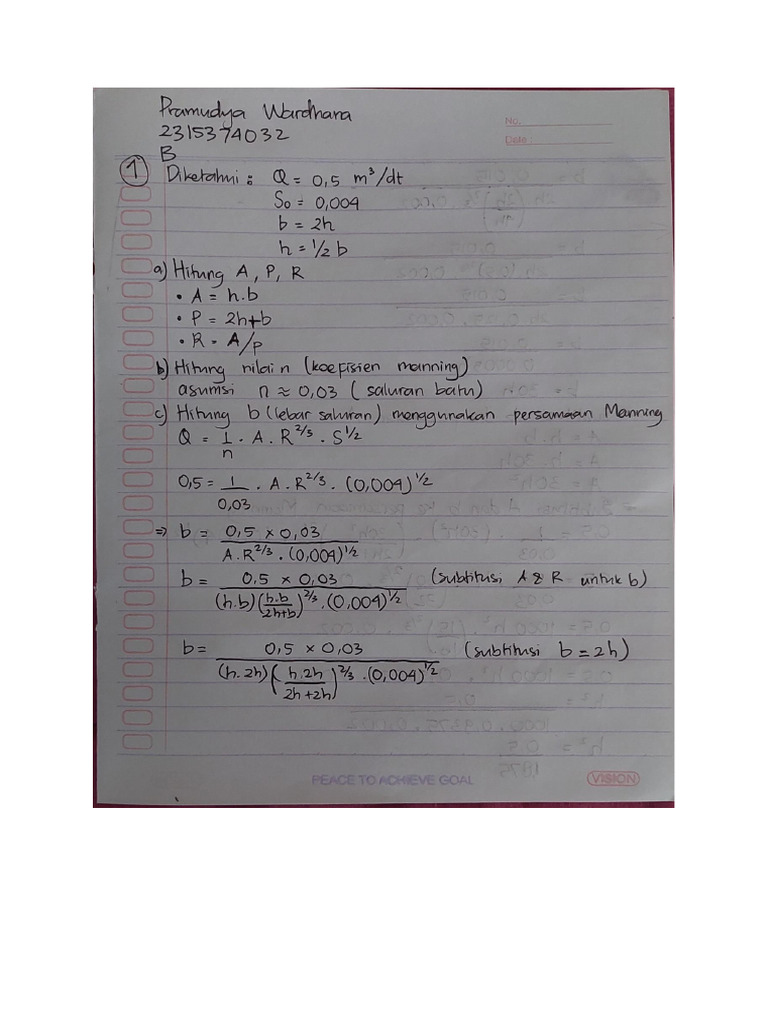 Pramudya Wardhana
2315374032
No.
Date :
B
1 Diketahui : Q = 0,5 m³/dt
S₀ = 0,004
b = 2h
h = 1/2 b
a) Hitung A, P, R
• A = h.b
• P = 2h+b
• R = A/P
b) Hitung nilai n (koefisien manning)
asumsi n ≈ 0,03 (saluran batu)
c) Hitung b (lebar saluran) menggunakan persamaan Manning
Q = 1/n . A . R^2/3 . S^1/2
0,5 = 1/0,03 . A . R^2/3 . (0,004)^1/2
⇒ b = 0,5 × 0,03 / A . R^2/3 . (0,004)^1/2
b = 0,5 × 0,03 / (h.b)(h.b/2h+b)^2/3 . (0,004)^1/2 (subtitusi A & R untuk b)
b = 0,5 × 0,03 / (h.2h)(h.2h/2h+2h)^2/3 . (0,004)^1/2 (subtitusi b = 2h)
PEACE TO ACHIEVE GOAL
VISION